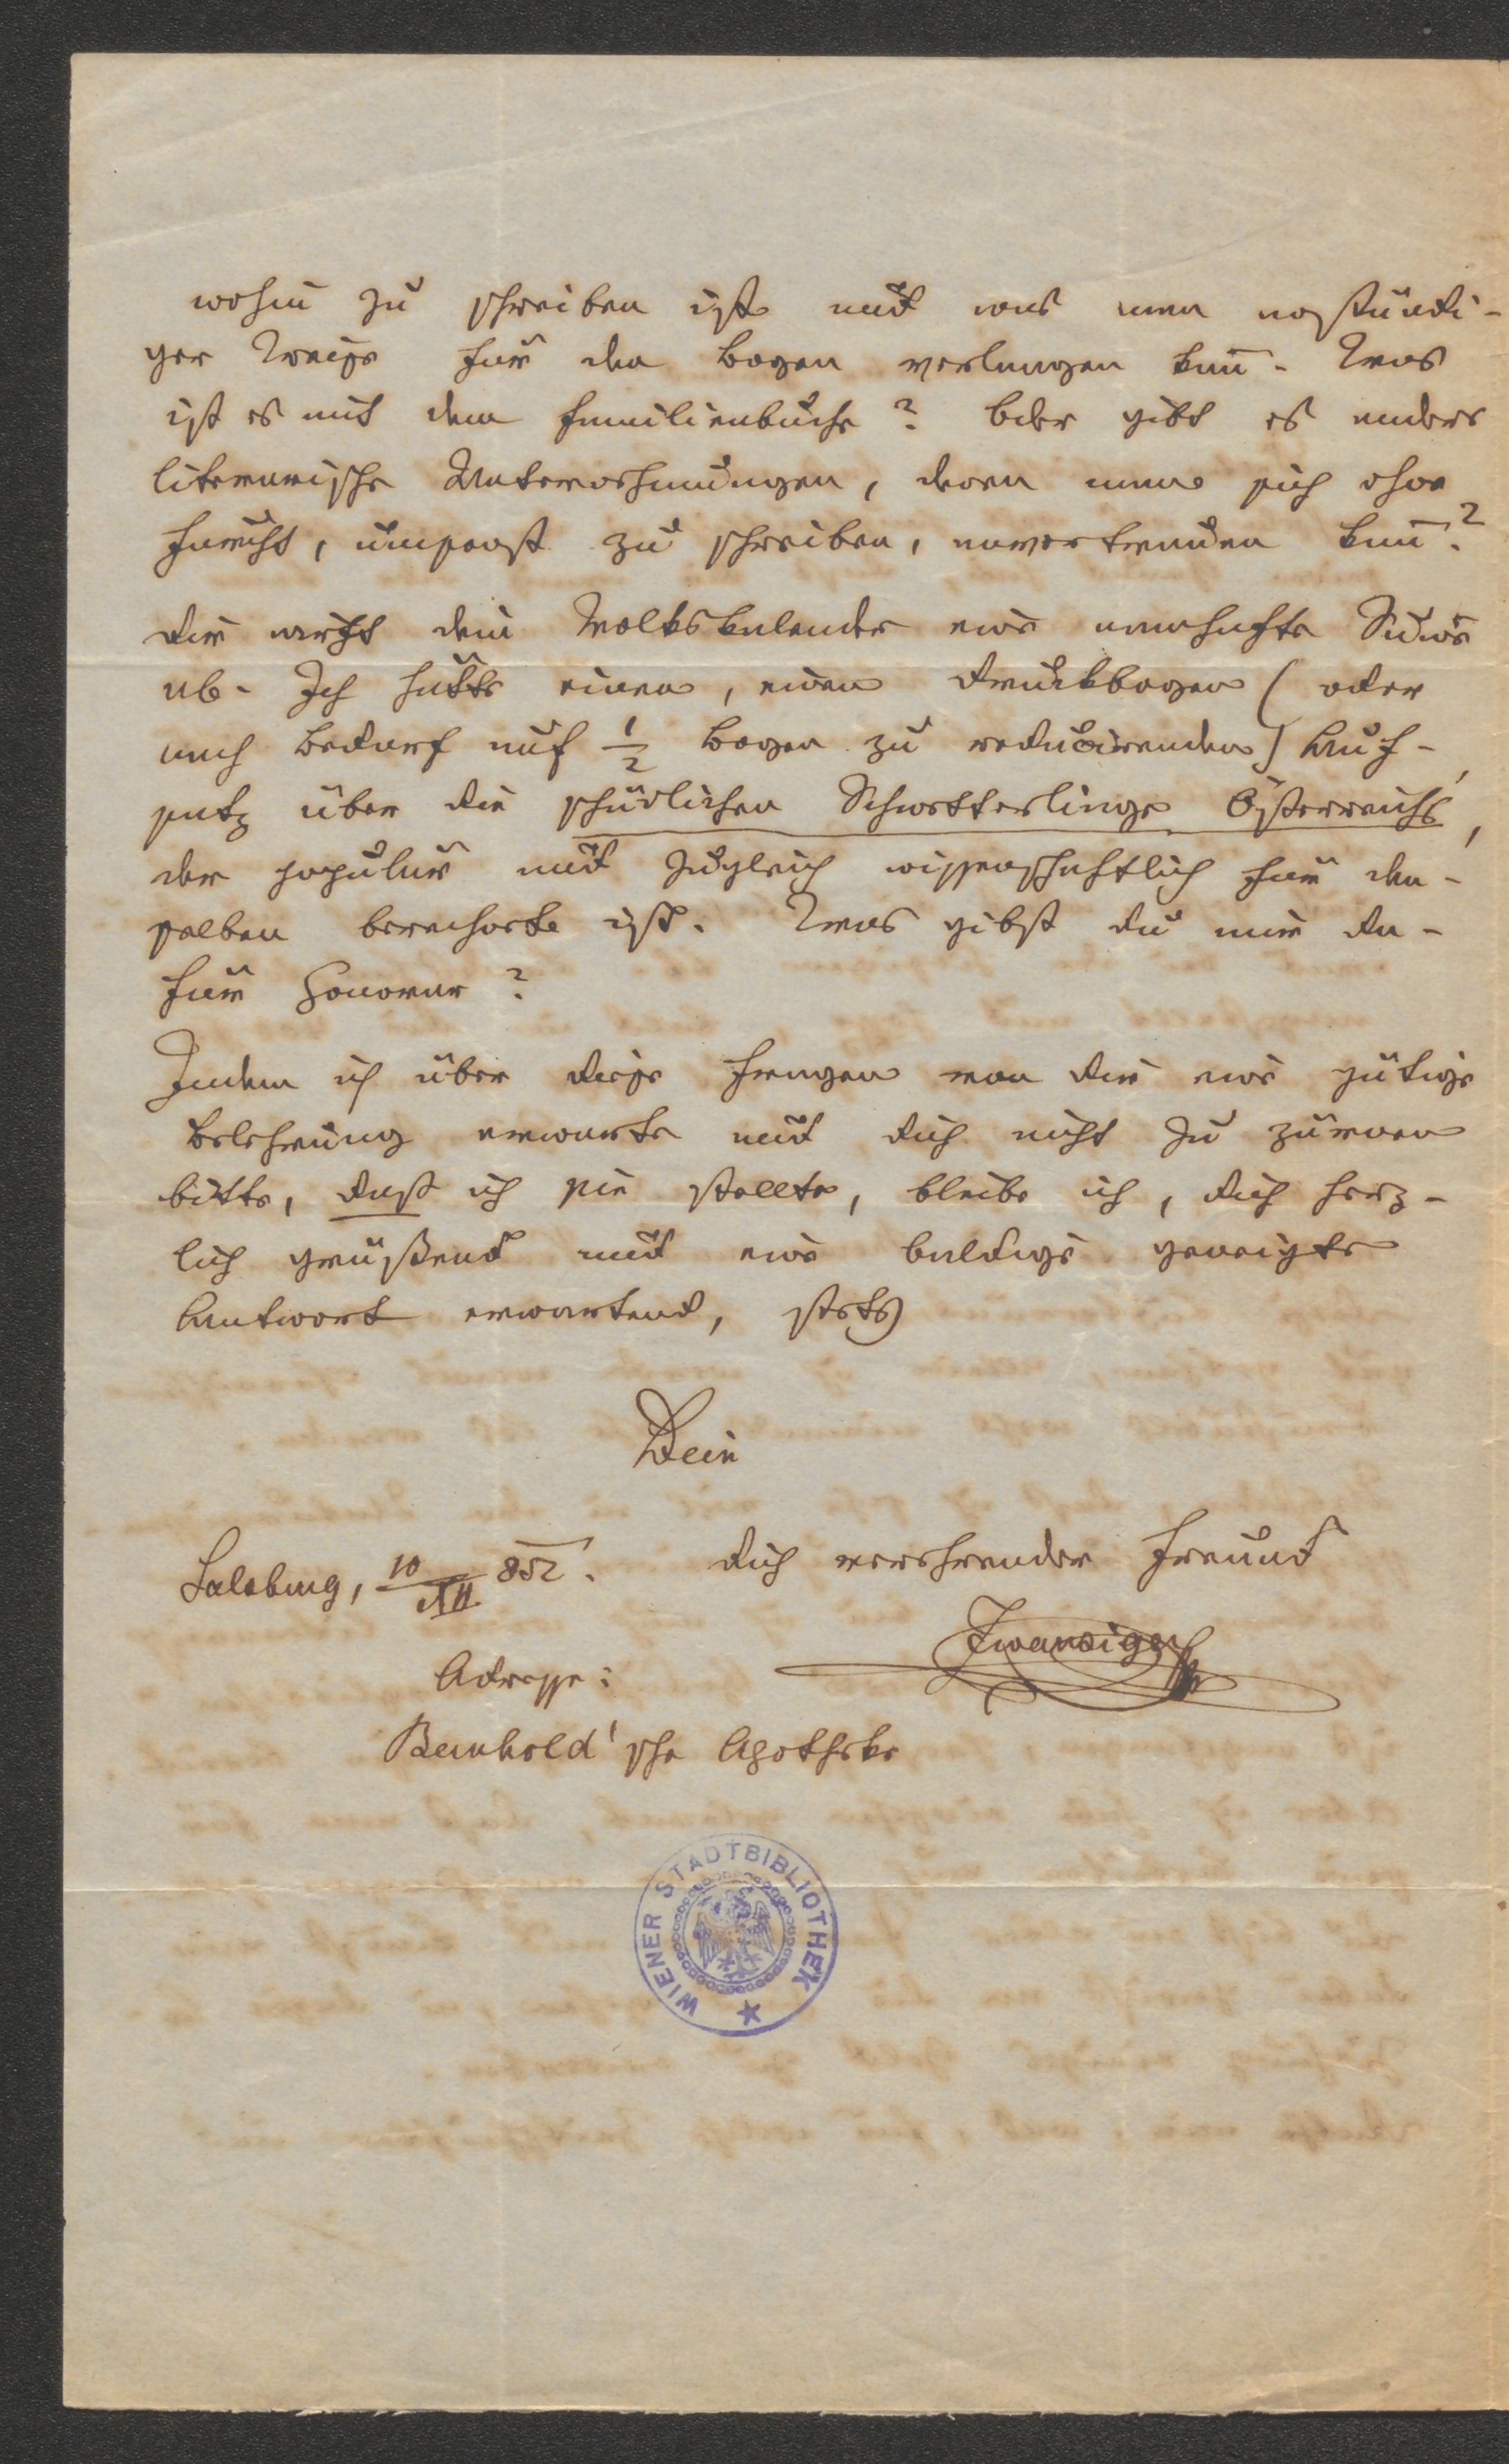 wohin zu schreiben ist und was man anständi-
ger Weise für den Bogen verlangen kan̅. Was
ist es mit dem Familienbuche? Oder gibt es andere
literarische Unternehmungen, denen man sich ohne
Furcht, umsonst zu schreiben, anvertrauen kan̅?
Dir wirft dein Volkskalender eine namhafte Suṁe
ab. Ich hätte einen, einen Druckbogen (oder
nach Bedarf auf ½ Bogen zu reducirenden) Auf-
satz über die schädlichen Schmetterlinge Österreichs,
der populär und zugleich wissenschaftlich für den-
selben berechnet ist. Was gibst du mir da-
für Honorar?
Indem ich über diese Fragen von dir eine gütige
Belehrung erwarte und dich nicht zu zürnen
bitte, daß ich sie stellte, bleibe ich, dich herz-
lich grüßend und eine baldige geneigte
Antwort erwartend, stets
Dein
dich verehrender Freund
Salzburg, 10/XII 852.
Zwanziger
Adresse:
Bernhold'sche Apotheke
WIENER STADTBIBLIOTHEK